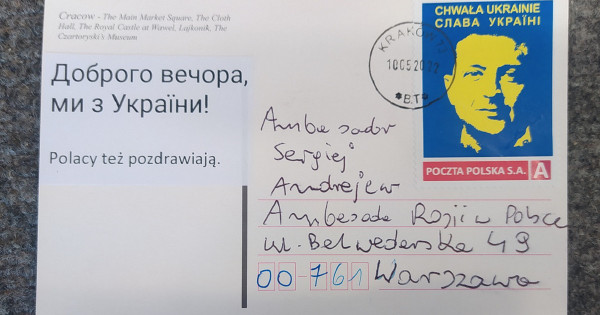 Cracow - The Main Market Square, The Cloth
Hall, The Royal Castle at Wawel, Lajkonik, The
Czartoryski's Museum
Доброго вечора,
ми з України!
Polacy też pozdrawiają.
KRAKÓW
10.05.2022
*B.T*
CHWAŁA UKRAINIE
СЛАВА УКРАЇНІ
POCZTA POLSKA S.A. A
Ambasador
Sergiej
Andrejew
Ambasada Rosji w Polsce
ul. Belwederska 49
00-761 Warszawa